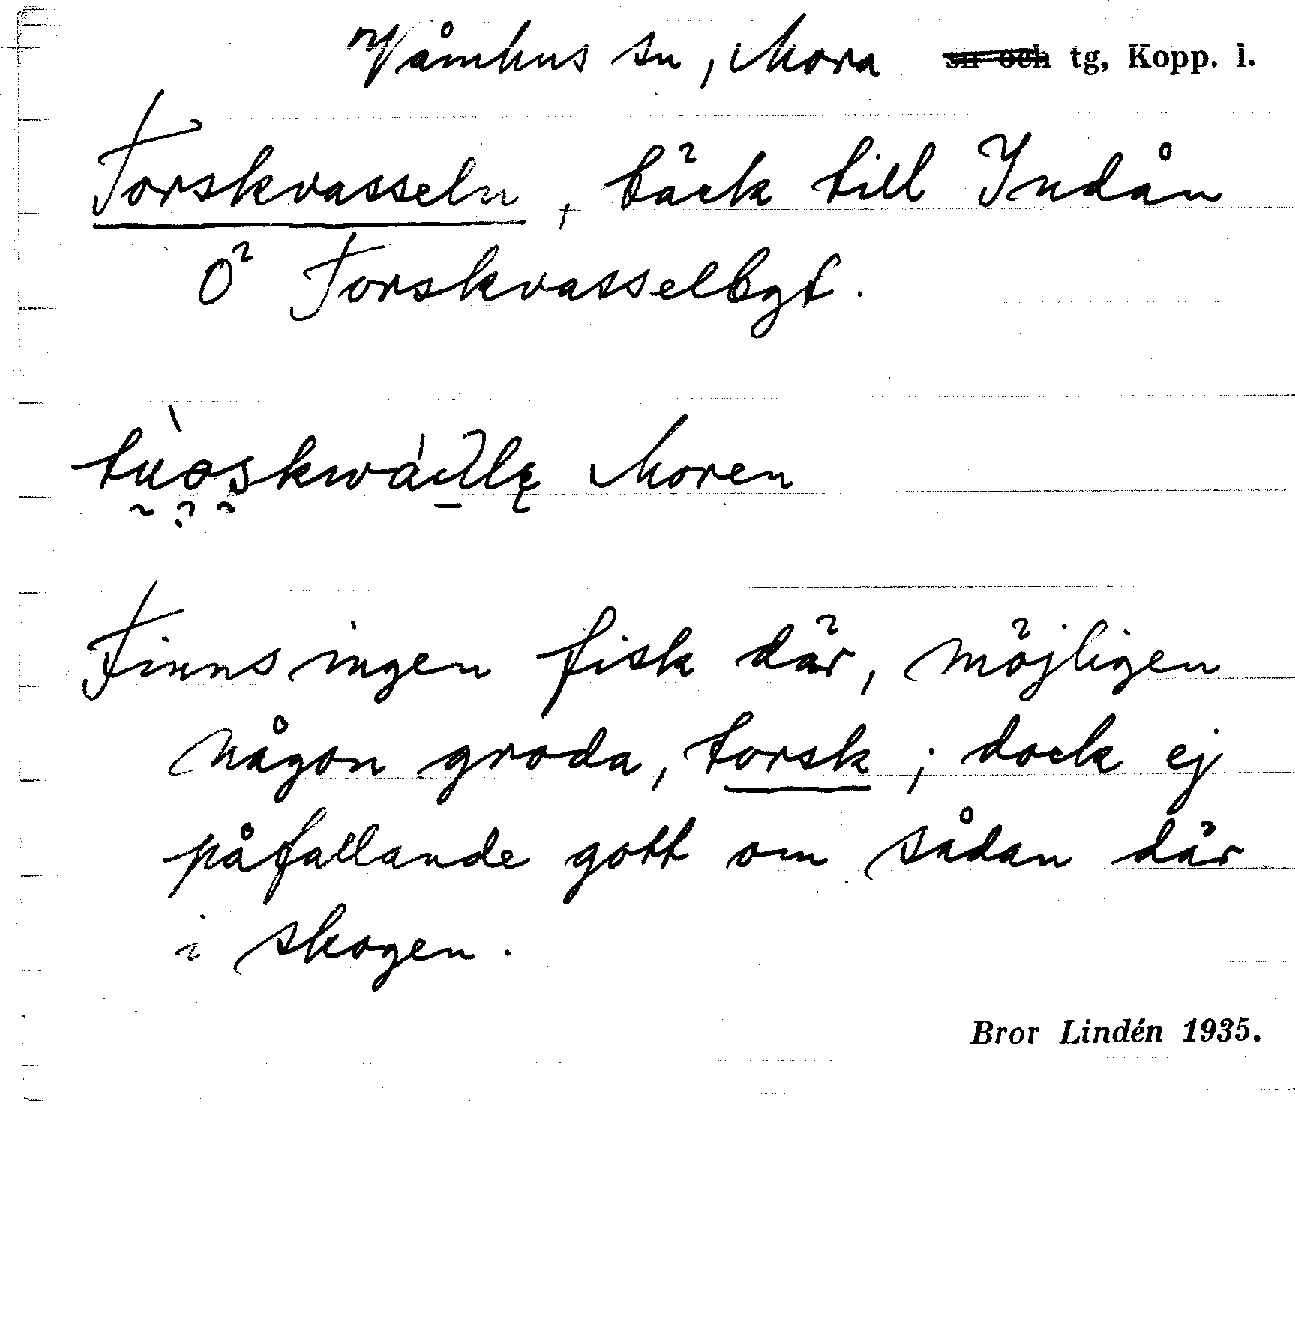 Våmhus sn, Mora ~~sn och~~ tg, Kopp. l.
Torskvasseln, bäck till Indån
O² Torskvasselbgt.
Moren
Finns ingen fisk där, möjligen
någon groda, torsk; dock ej
påfallande gott om sådan där
i skogen.
Bror Lindén 1935.